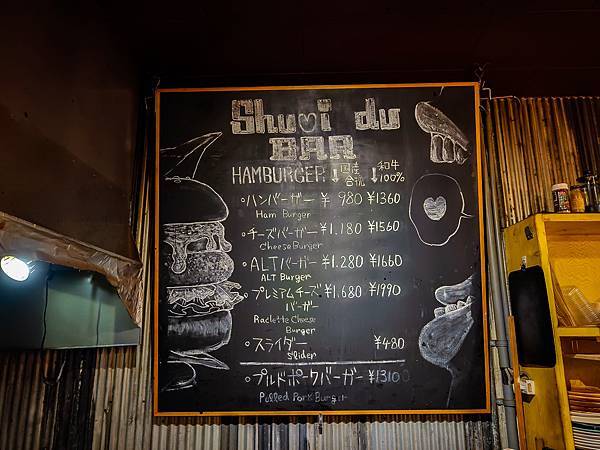 Shu♡i du
BAR
HAMBURGER ↓国産合挽 ↓和牛100%
・ハンバーガー ¥ 980 ¥1360
Ham Burger
・チーズバーガー ¥1.180 ¥1560
Cheese Burger
・ALTバーガー ¥1.280 ¥1660
ALT Burger
・プレミアムチーズ ¥1.680 ¥1990
バーガー
Raclette Cheese
Burger
・スライダー ¥480
Slider
・プルドポークバーガー ¥1310
Pulled Pork Burger